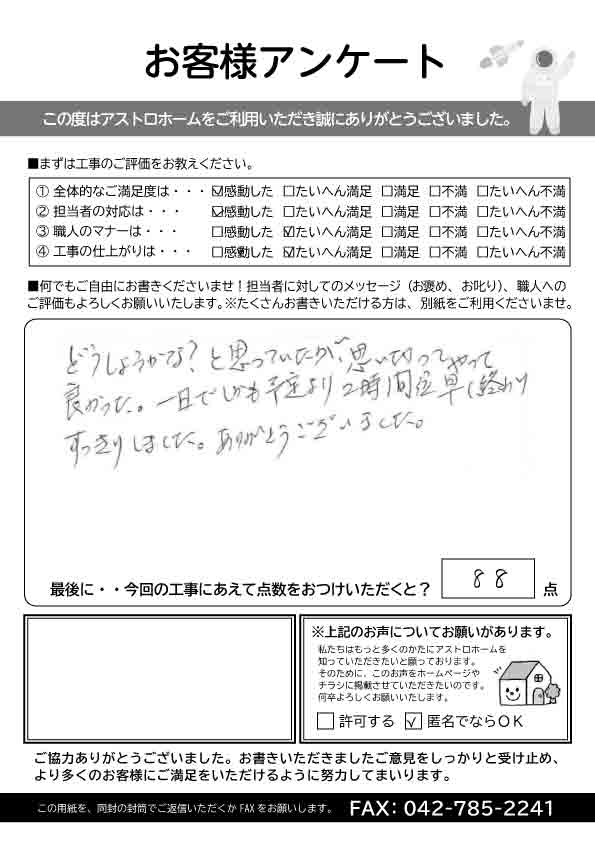 お客様アンケート
この度はアストロホームをご利用いただき誠にありがとうございました。
■まずは工事のご評価をお教えください。
① 全体的なご満足度は・・・ ☑感動した □たいへん満足 □満足 □不満 □たいへん不満
② 担当者の対応は・・・ ☑感動した □たいへん満足 □満足 □不満 □たいへん不満
③ 職人のマナーは・・・ □感動した ☑たいへん満足 □満足 □不満 □たいへん不満
④ 工事の仕上がりは・・・ □感動した ☑たいへん満足 □満足 □不満 □たいへん不満
■何でもご自由にお書きくださいませ！担当者に対してのメッセージ（お褒め、お叱り）、職人への
ご評価もよろしくお願いいたします。※たくさんお書きいただける方は、別紙をご利用くださいませ。
どうしようかな？と思っていたが、思い切ってやって
良かった。一日でしかも予定より2時間位早く終わり
すっきりしました。ありがとうございました。
最後に・・今回の工事にあえて点数をおつけいただくと？ 88 点
※上記のお声についてお願いがあります。
私たちはもっと多くのかたにアストロホームを
知っていただきたいと願っております。
そのために、このお声をホームページや
チラシに掲載させていただきたいのです。
何卒よろしくお願いいします。
□ 許可する ☑ 匿名でならOK
ご協力ありがとうございました。お書きいただきましたご意見をしっかりと受け止め、
より多くのお客様にご満足をいただけるように努力してまいります。
この用紙を、同封の封筒でご返信いただくか FAX をお願いします。 FAX: 042-785-2241